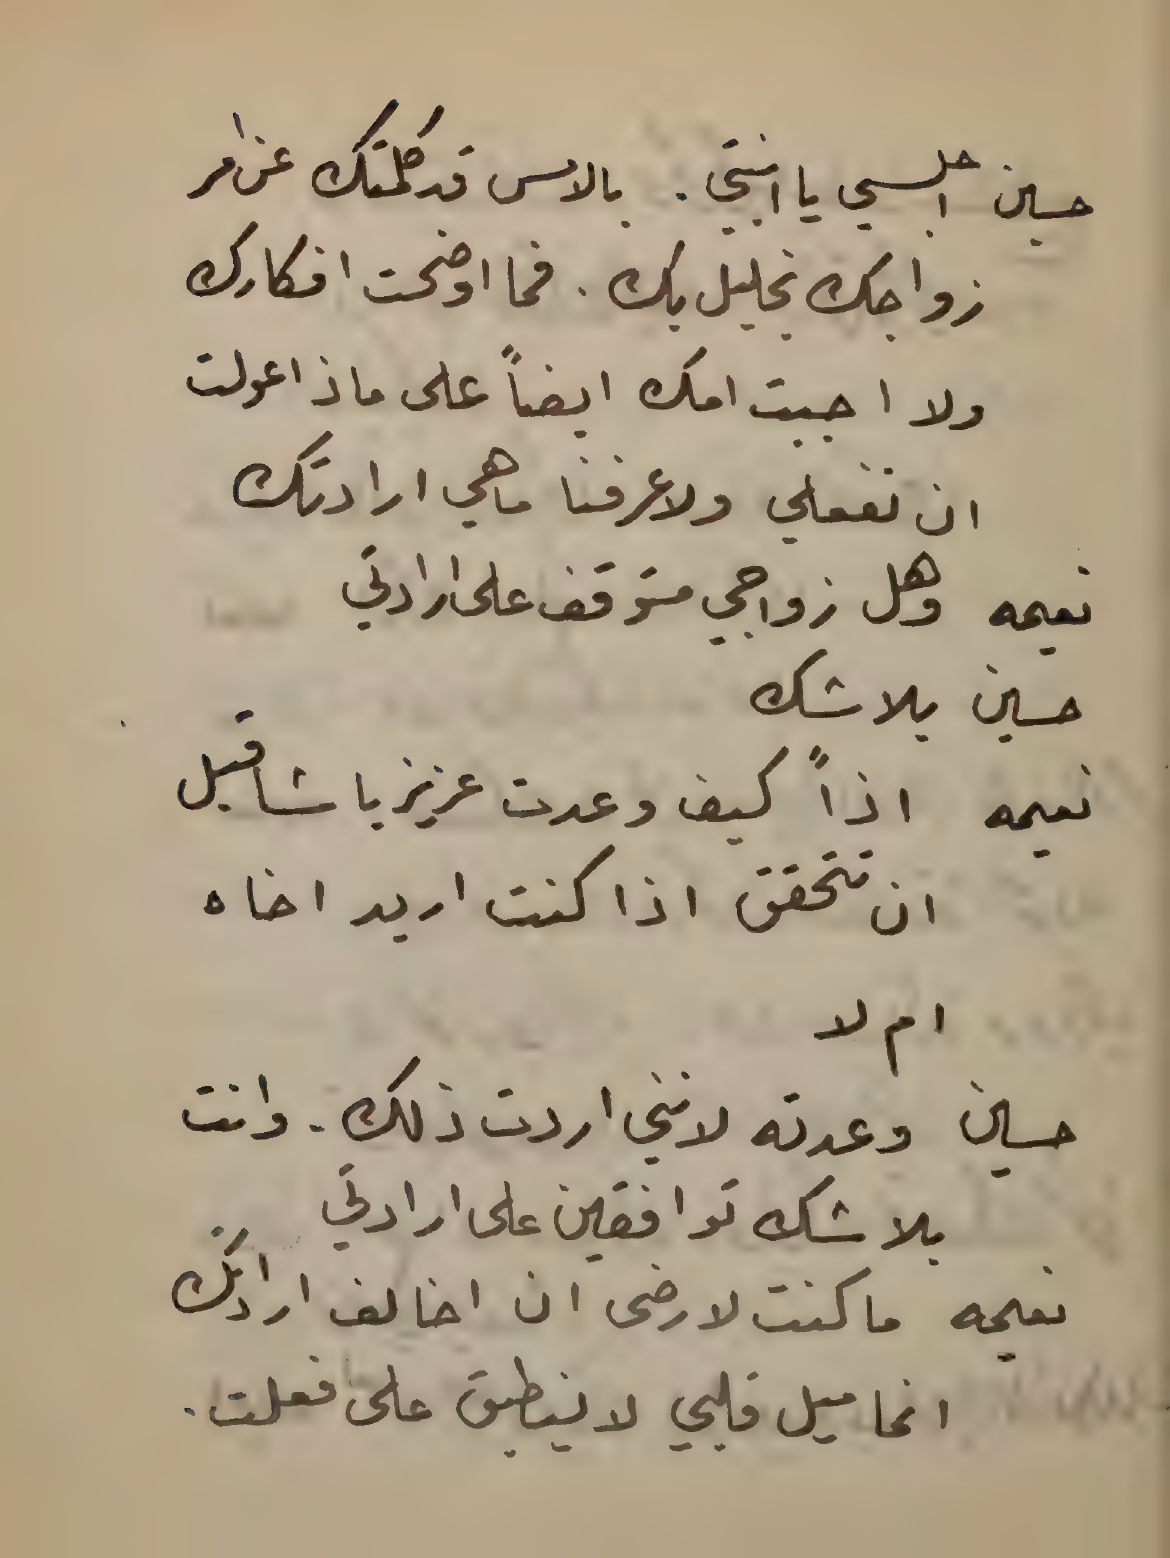 حسين اجلسي يا ابنتي . بالامس قد كلمتك عن امر
زواجك بخليل بك . فما اوضحت افكارك
ولا اجبت امك ايضاً على ماذا عولت
ان تفعلي ولا عرفنا ما هي ارادتك
نعيمه وهل زواجي متوقف على ارادتي
حسين بلا شك
نعيمه اذاً كيف وعدت عزيز باشا قبل
ان تتحقق اذا كنت اريد اخاه
ام لا
حسين وعدته لانني اردت ذلك . وانت
بلا شك توافقين على ارادتي
نعيمه ما كنت لارضى ان اخالف ارادتك
انما ميل قلبي لا ينطبق على فعلت .